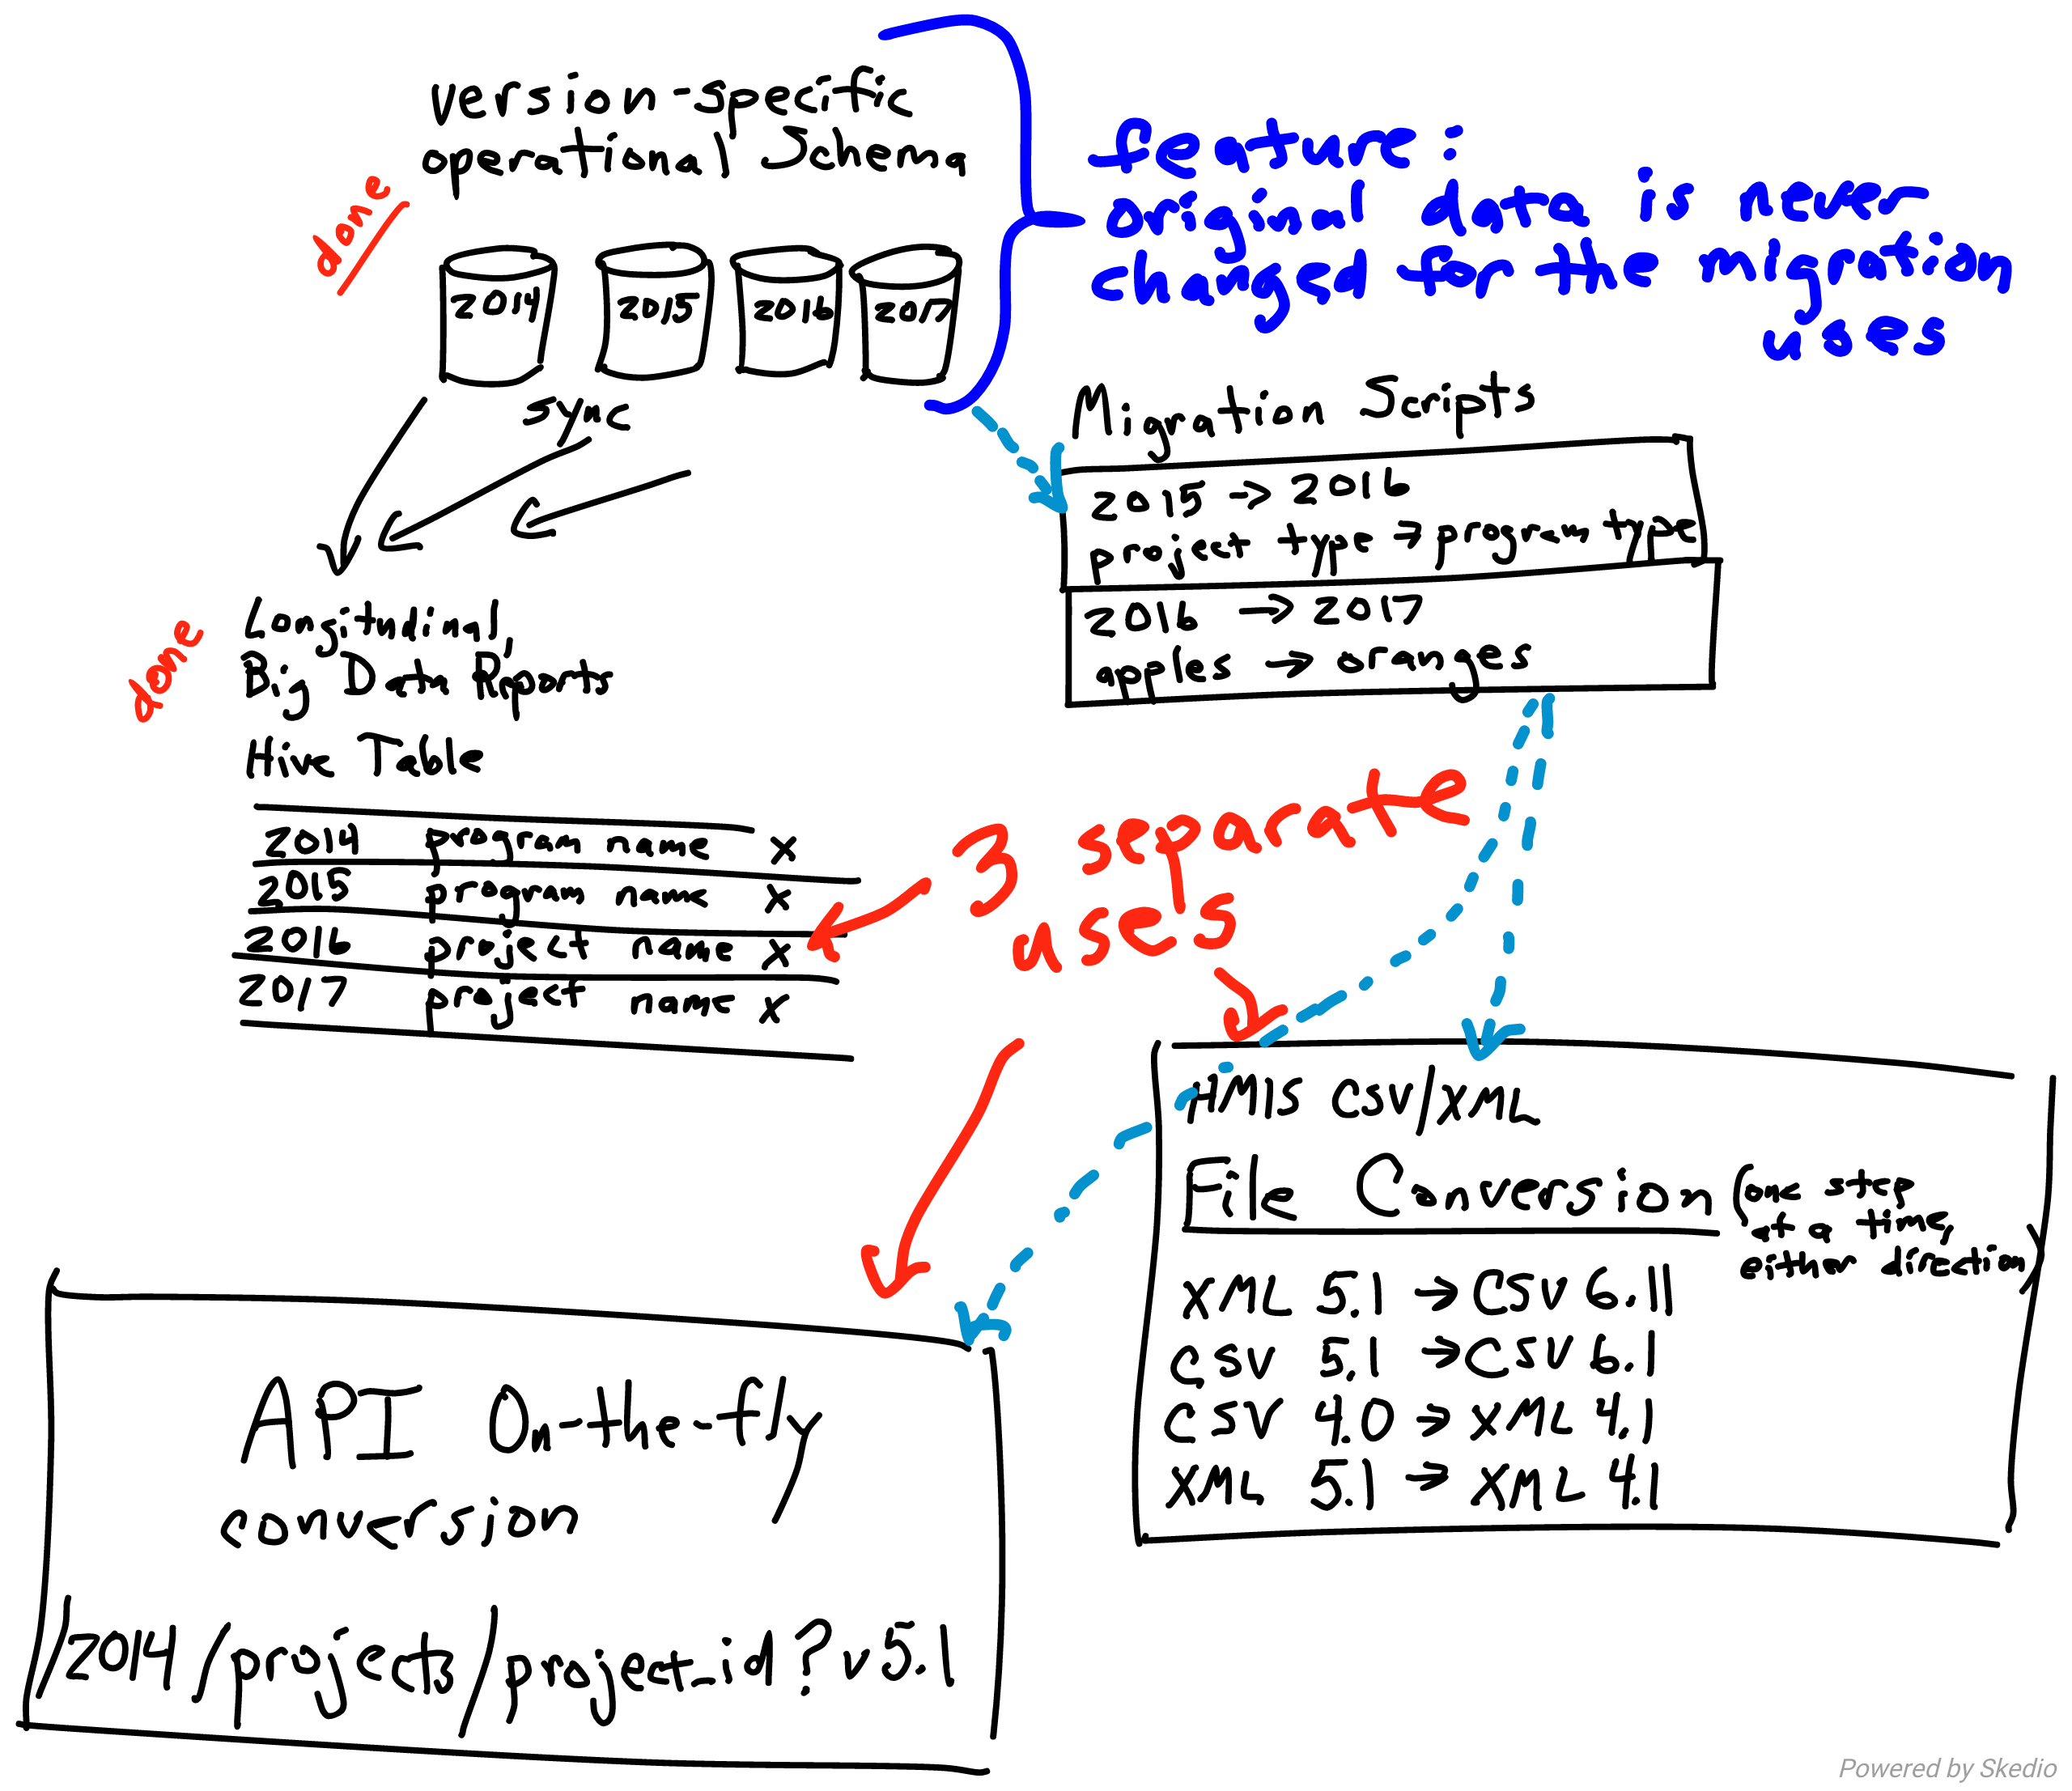 version-specific
operational Schema
done
2014
2015
2016
2017
sync
feature:
original data is never
changed for the migration
uses
Migration Scripts
2015 -> 2016
project type -> program type
2016 -> 2017
apples -> oranges
done
Longitudinal,
Big Data Reports
Hive Table
2014 program name x
2015 program name x
2016 project name x
2017 project name x
3 separate
uses
HMIS CSV/XML
File Conversion (one step
at a time,
either direction)
XML 5.1 -> CSV 6.11
CSV 5.1 -> CSV 6.1
CSV 4.0 -> XML 4.1
XML 5.1 -> XML 4.1
API On-the-fly
conversion
/2014/projects/project_id?v5.1
Powered by Skedio